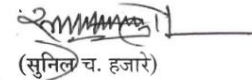 (सुनिल च. हजारे)